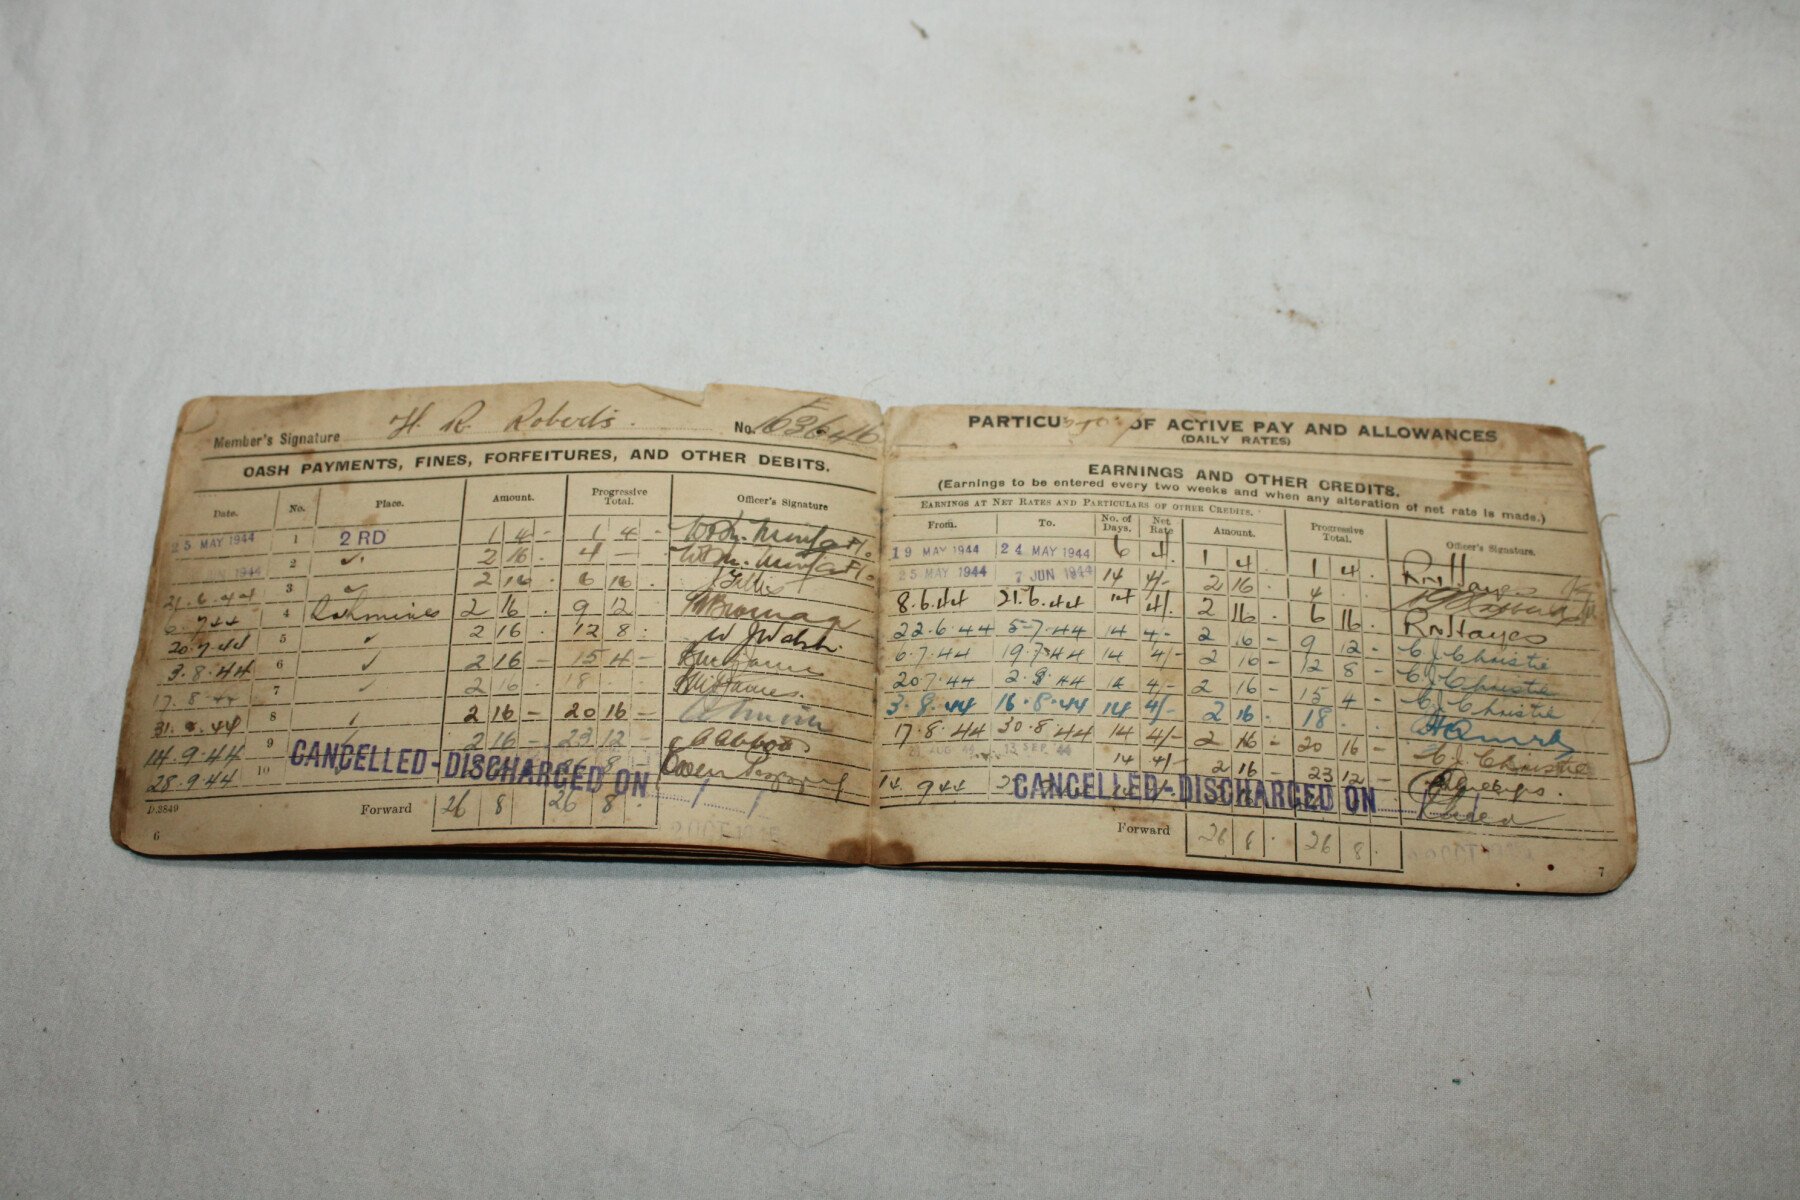 Member's Signature H. R. Roberts. No. 163646
CASH PAYMENTS, FINES, FORFEITURES, AND OTHER DEBITS.
Date. No. Place. Amount. Progressive Total. Officer's Signature
25 MAY 1944 1 2 RD 1 4 - 1 4 -
JUN 1944 2 2 16 . 4 -
21.6.44 3 2 16 . 6 16 . J Gillis
6.7.44 4 2 16 . 9 12 .
20.7.44 5 2 16 . 12 8 . W J Walsh.
3.8.44 6 2 16 - 15 4 -
17.8.44 7 2 16 18
31.8.44 8 2 16 - 20 16 -
14.9.44 9 2 16 - 23 12 - Abbott
28.9.44 10
CANCELLED - DISCHARGED ON / /
D.3849 Forward 26 8 26 8 .
6
PARTICU OF ACTIVE PAY AND ALLOWANCES
(DAILY RATES)
EARNINGS AND OTHER CREDITS.
(Earnings to be entered every two weeks and when any alteration of net rate is made.)
EARNINGS AT NET RATES AND PARTICULARS OF OTHER CREDITS.
From. To. No. of Days. Net Rate Amount. Progressive Total. Officer's Signature.
19 MAY 1944 24 MAY 1944 6 4/. 1 4 . 1 4 . R M Hayes
25 MAY 1944 7 JUN 1944 14 4/- 2 16 . 4 .
8.6.44 21.6.44 14 4/. 2 16 . 6 16 . R M Hayes
22.6.44 5-7.44 14 4/- 2 16 - 9 12 - C J Christie
6.7.44 19.7.44 14 4/- 2 16 - 12 8 - C J Christie
20.7.44 2.8.44 14 4/- 2 16 - 15 4 - C J Christie
3.8.44 16.8.44 14 4/- 2 16 . 18 .
17.8.44 30.8.44 14 4/- 2 16 - 20 16 - C J Christie
31 AUG 44 13 SEP 44 14 4/- 2 16 - 23 12 -
14.9.44
CANCELLED - DISCHARGED ON
Forward 26 8 . 26 8 .
7